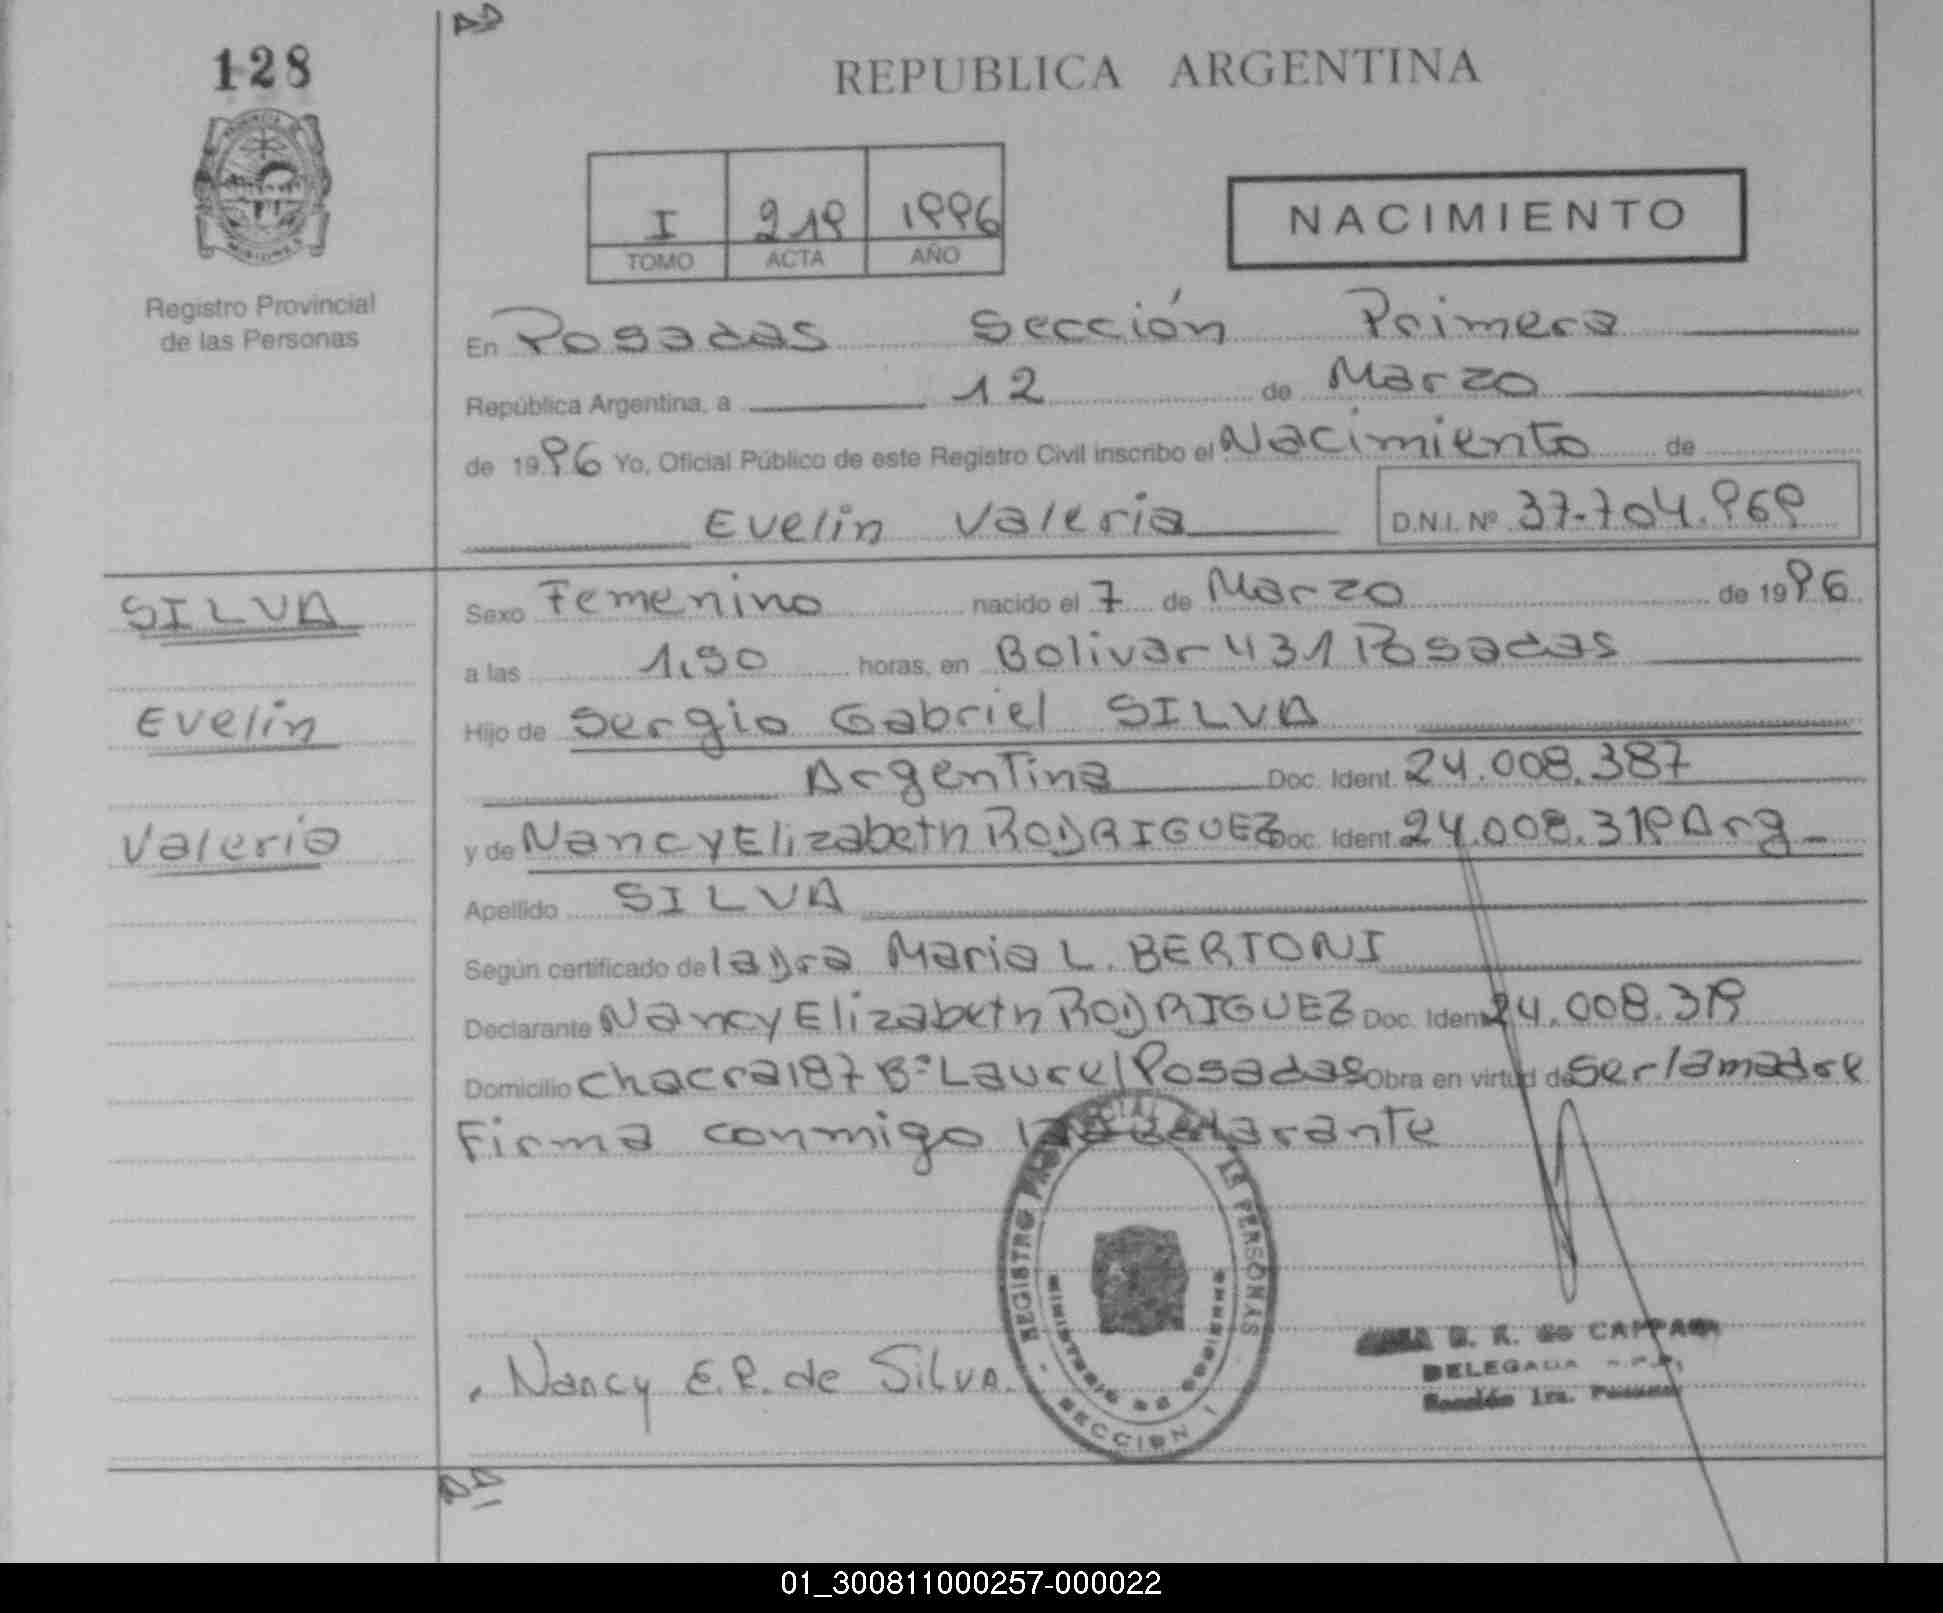 128
REPUBLICA ARGENTINA
I 219 1996
TOMO ACTA AÑO
NACIMIENTO
Registro Provincial
de las Personas
En Posadas Sección Primera
República Argentina, a 12 de Marzo
de 1996 Yo, Oficial Público de este Registro Civil inscribo el Nacimiento de
Evelin Valeria D.N.I. Nº 37.704.969
SILVA
Evelin
Valeria
Sexo Femenino nacido el 7 de Marzo de 1996
a las 1,50 horas, en Bolivar 431 Posadas
Hijo de Sergio Gabriel SILVA
Argentina Doc. Ident. 24.008.387
y de Nancy Elizabeth RODRIGUEZ Doc. Ident. 24.008.319 Arg_
Apellido SILVA
Según certificado de la Dra Maria L. BERTONI
Declarante Nancy Elizabeth RODRIGUEZ Doc. Ident 24.008.319
Domicilio Chacra 187 Bº Laurel Posadas Obra en virtud de ser la madre
Firma conmigo la declarante
REGISTRO PROVINCIAL DE LAS PERSONAS
MINISTERIO DE GOBIERNO
SECCION 1
Nancy E.R. de Silva.
R. de CAPPA
DELEGADA
Sección 1ra. Posadas
01_300811000257-000022